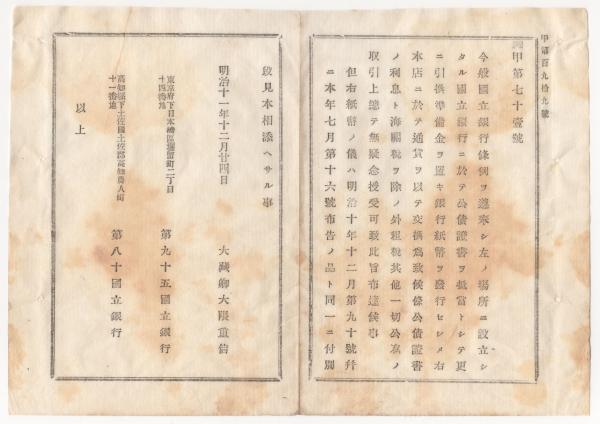 甲第百九拾九號
甲第七十壹號
今般國立銀行條例ヲ遵奉シ左ノ場所ニ設立シ
タル國立銀行ニ於テ公債證書ヲ抵當トシテ更
ニ引換準備金ヲ置キ銀行紙幣ヲ發行セシメ右
本店ニ於テ通貨ヲ以テ交換爲致候條公債證書
ノ利息ト海關稅ヲ除ノ外租稅其他一切公私ノ
取引上總テ無疑念授受可致此旨布達候事
但右紙幣ノ儀ハ明治十年十二月第九十號幷
ニ本年七月第十六號布告ノ品ト同一ニ付別
段見本相添ヘサル事
明治十一年十二月廿四日
大藏卿大隈重信
東京府下日本橋區
二丁目
十四番地
第九十五國立銀行
高知縣下土佐國土佐郡高知
人町
十一番地
第八十國立銀行
以上